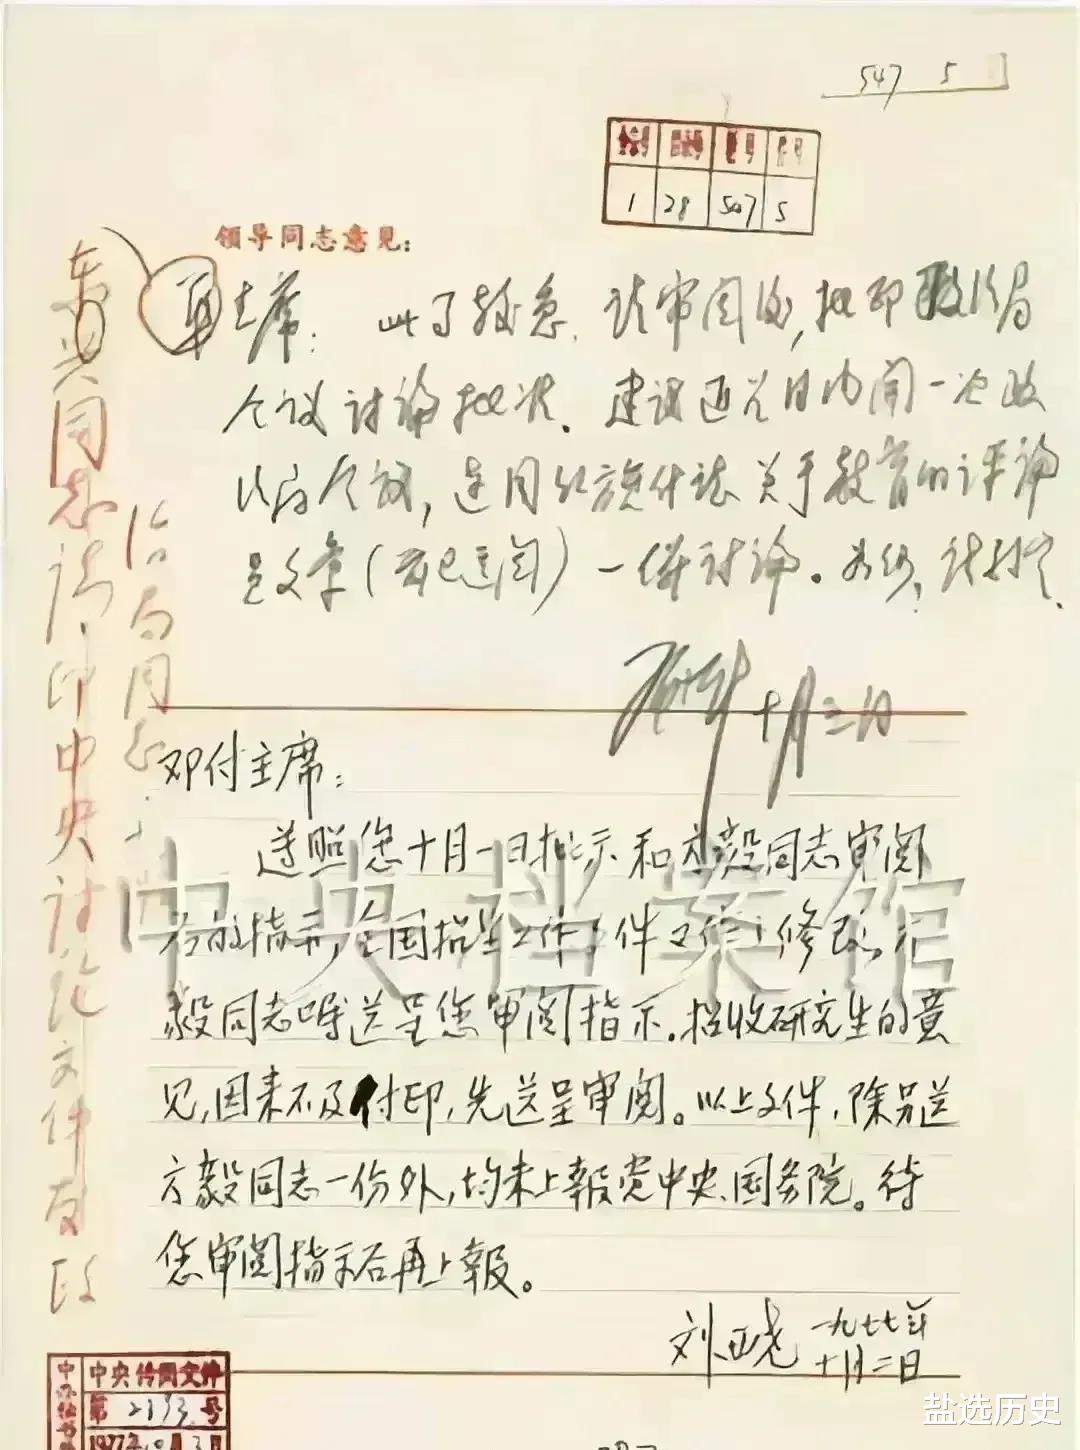 547 5
全宗号 目录号 卷号 件号
1 28 507 5
领导同志意见:
华主席: 此事较急. 请审阅后, 批印政治局
会议讨论批准. 建议近几日内开一次政
治局会议, 连同红旗什志关于教育的评论
员文章(我已送阅)一併讨论. 如何, 请批示.
邓小平 十月三日
东兴同志:请印中央讨论文件发政
治局同志
邓付主席:
遵照您十月一日批示和方毅同志审阅
后的指示, 全国招生工作文件又作了修改,
毅同志嘱送呈您审阅指示. 招收研究生的意
见, 因来不及付印, 先送呈审阅。以上文件, 除另送
方毅同志一份外, 均未上報党中央、国务院。待
您审阅指示后再上報。
刘西尧 一九七七年
十月二日
中央档案馆
中央传阅文件
第 2193 号
1977年10月3日
盐选历史